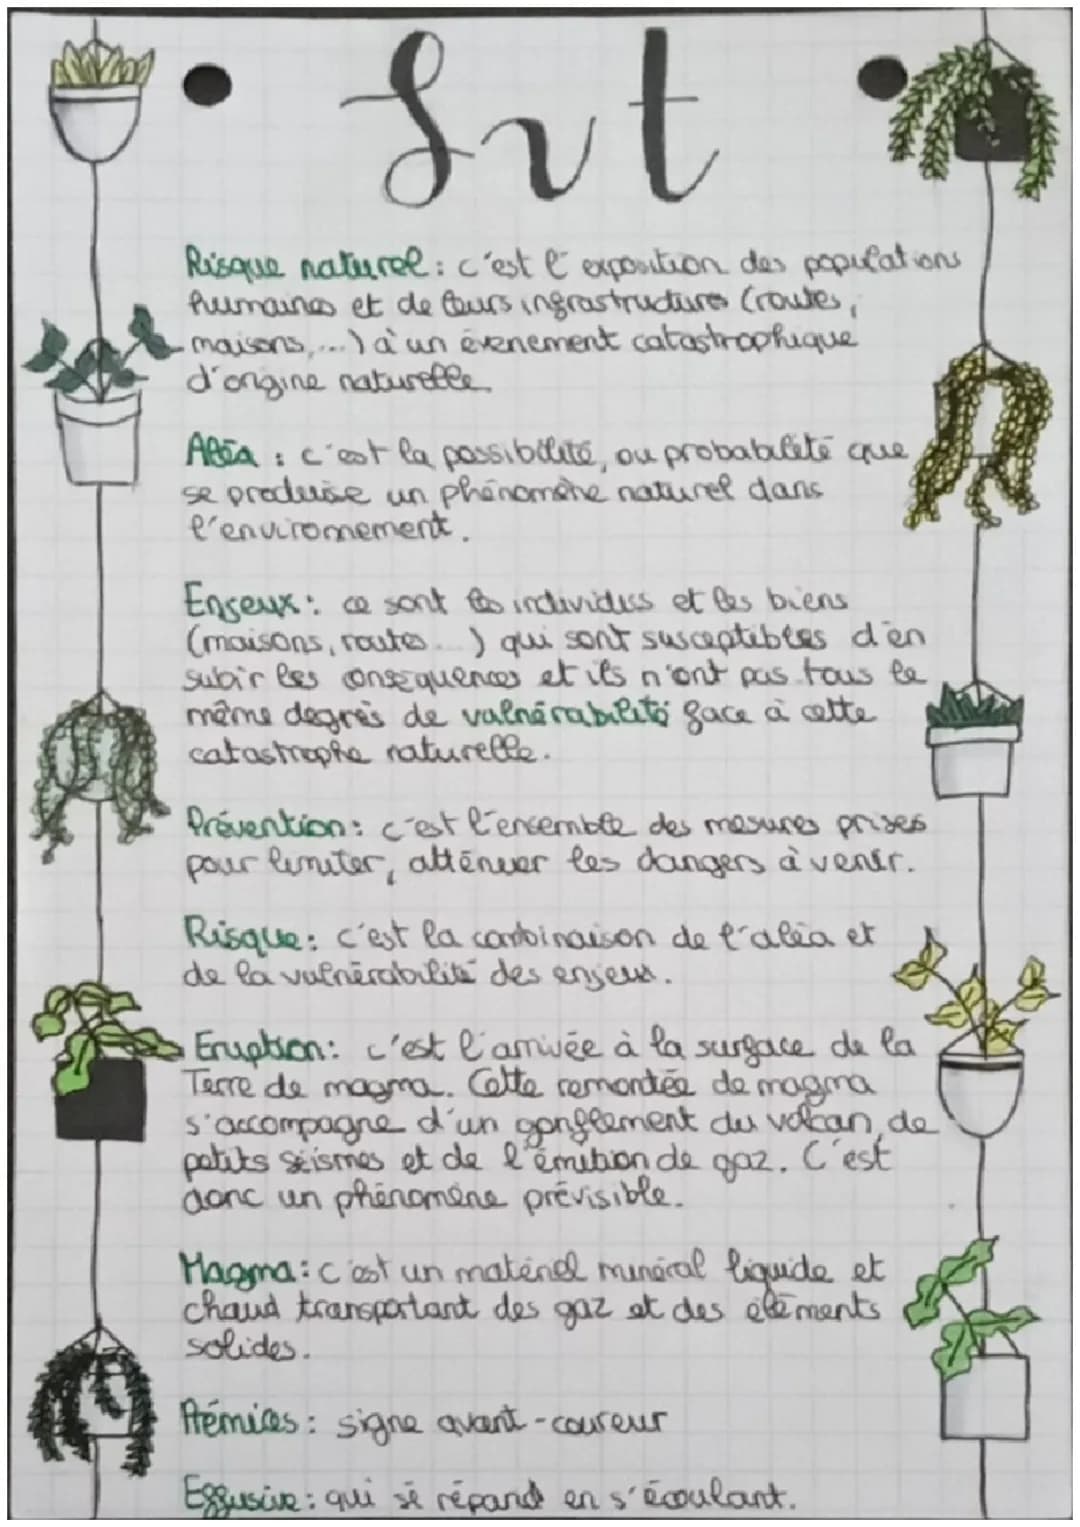 Svt
Risque naturel : c'est l'exposition des populations
humaines et de leurs infrastructures (routes,
maisons,...) à un évenement catastrophique
d'origine naturelle.
Aléa : c'est la possibilité, ou probabilité que
se produise un phénomène naturel dans
l'environnement.
Enjeux : ce sont les individus et les biens
(maisons, routes...) qui sont susceptibles d'en
subir les conséquences et ils n'ont pas tous le
même degrès de vulnérabilité face à cette
catastrophe naturelle.
Prévention : c'est l'ensemble des mesures prises
pour limiter, atténuer les dangers à venir.
Risque : c'est la combinaison de l'aléa et
de la vulnérabilité des enjeux.
Eruption : c'est l'arrivée à la surface de la
Terre de magma. Cette remontée de magma
s'accompagne d'un gonflement du volcan, de
petits séismes et de l'émition de gaz. C'est
donc un phénomène prévisible.
Magma : c'est un matériel minéral liquide et
chaud transportant des gaz et des éléments
solides.
Prémices : signe avant-coureur
Effusive : qui se répand en s'écoulant.